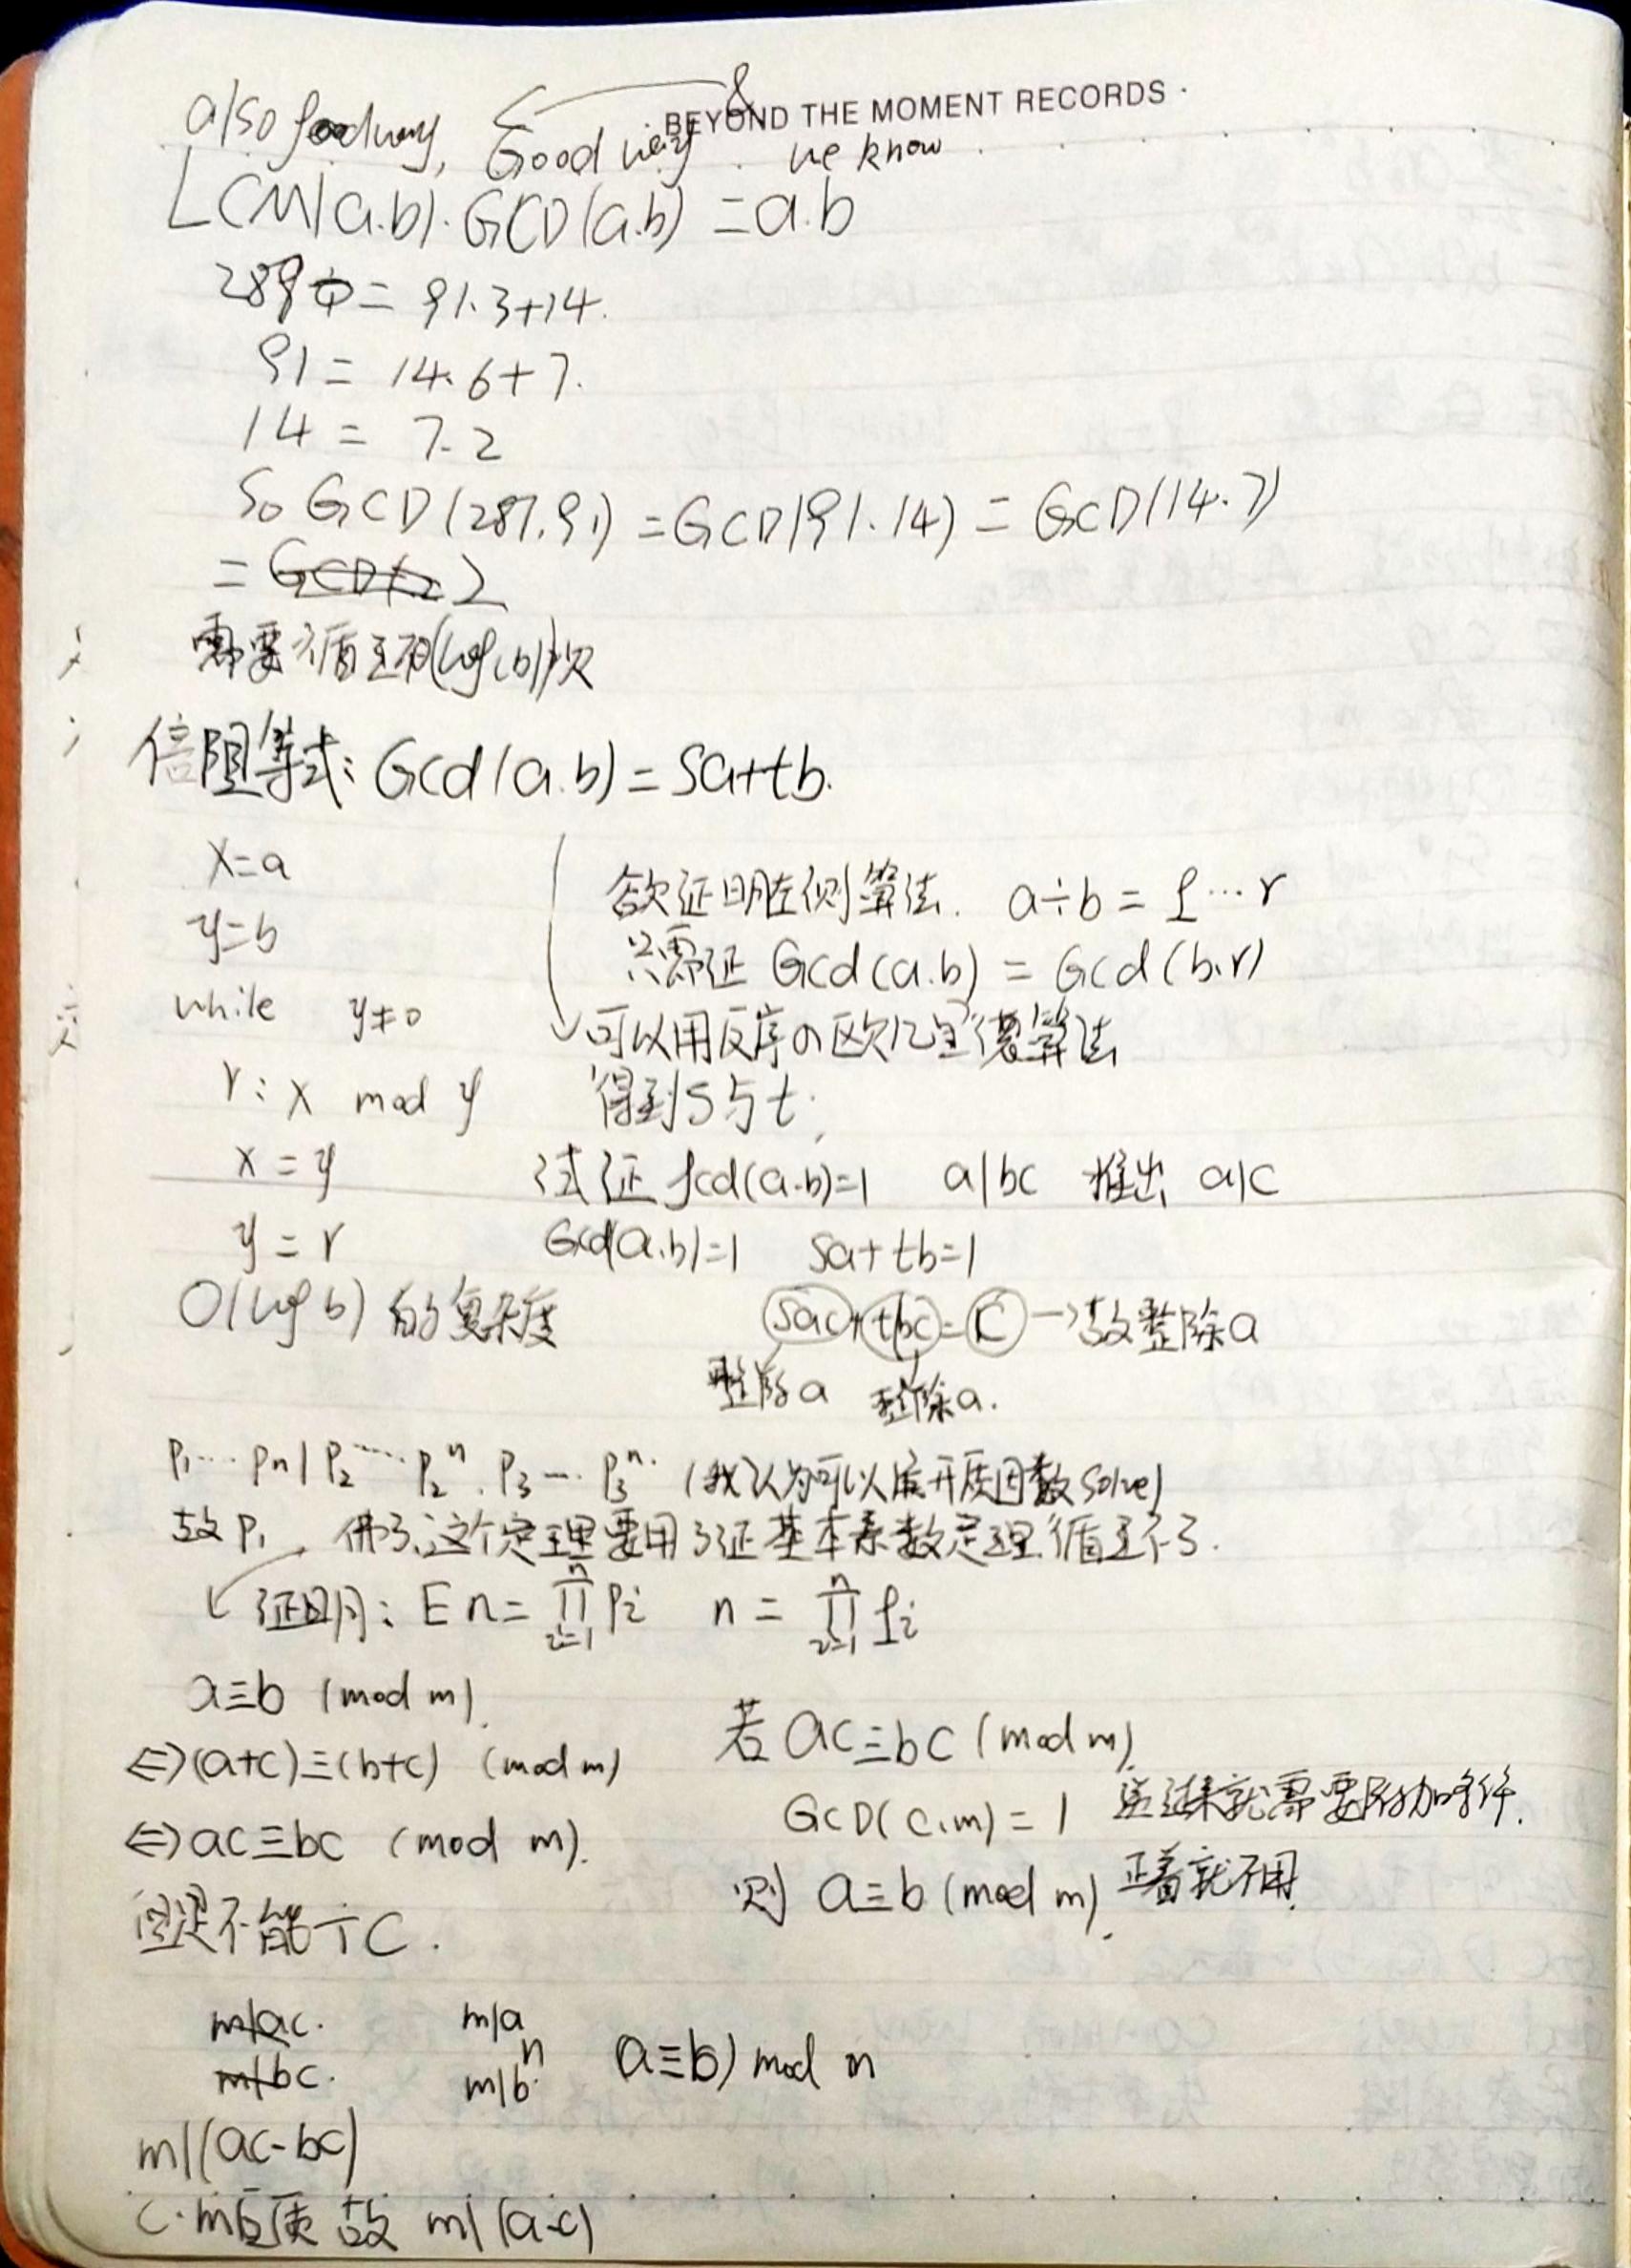 BEYOND THE MOMENT RECORDS
also good way, Good way & we know
LCM(a.b).GCD(a.b) = a.b
289 = 91.3+14.
91 = 14.6+7.
14 = 7.2
So GCD(287.91) = GCD(91.14) = GCD(14.7)
=
需要循环O(log(b))次
倍阻等式: Gcd(a.b) = Sa+tb.
x=a
y=b
while y≠0
r: x mod y
x = y
y = r
O(log b) 的复杂度
欲证明左侧算法. a÷b = q…r
只需证 Gcd(a.b) = Gcd(b.r)
可以用反序の欧几里德算法
得到S与t.
试证 gcd(a.b)=1 a|bc 推出 a|c
Gcd(a.b)=1 Sa+tb=1
Sac+tbc=C→故整除a
整除a 整除a.
P₁…Pn | P₂…P₂ⁿ. P₃…P₃ⁿ. (我认为可以展开质因数solve)
故P₁ 佛了,这个定理要用了证基本系数定理.循环了.
证明: E n= ∏ⁿᵢ₌₁ Pi n = ∏ⁿᵢ₌₁ qi
a≡b (mod m).
⇔(a+c)≡(b+c) (mod m)
⇔ac≡bc (mod m).
但是不能÷C.
若 ac≡bc (mod m).
GCD(c.m) = 1 逆过来就需要附加条件.
则 a≡b (mod m). 正着就不用.
m|ac. m|a
m|bc. m|bⁿ a≡b) mod n
m|(ac-bc)
c.m互质 故 m|(a-c)